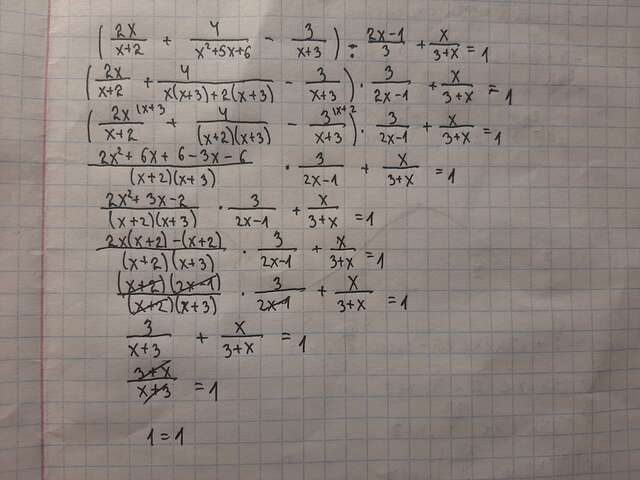 (2x/(x+2) + 4/(x²+5x+6) - 3/(x+3)) : (2x-1)/3 + x/(3+x) = 1
(2x/(x+2) + 4/(x(x+3)+2(x+3)) - 3/(x+3)) · 3/(2x-1) + x/(3+x) = 1
(2x|x+3/(x+2) + 4/((x+2)(x+3)) - 3|x+2/(x+3)) · 3/(2x-1) + x/(3+x) = 1
(2x²+6x+6-3x-6)/((x+2)(x+3)) · 3/(2x-1) + x/(3+x) = 1
(2x²+3x-2)/((x+2)(x+3)) · 3/(2x-1) + x/(3+x) = 1
(2x(x+2)-(x+2))/((x+2)(x+3)) · 3/(2x-1) + x/(3+x) = 1
((x+2)(2x-1))/((x+2)(x+3)) · 3/(2x-1) + x/(3+x) = 1
3/(x+3) + x/(3+x) = 1
(3+x)/(x+3) = 1
1=1